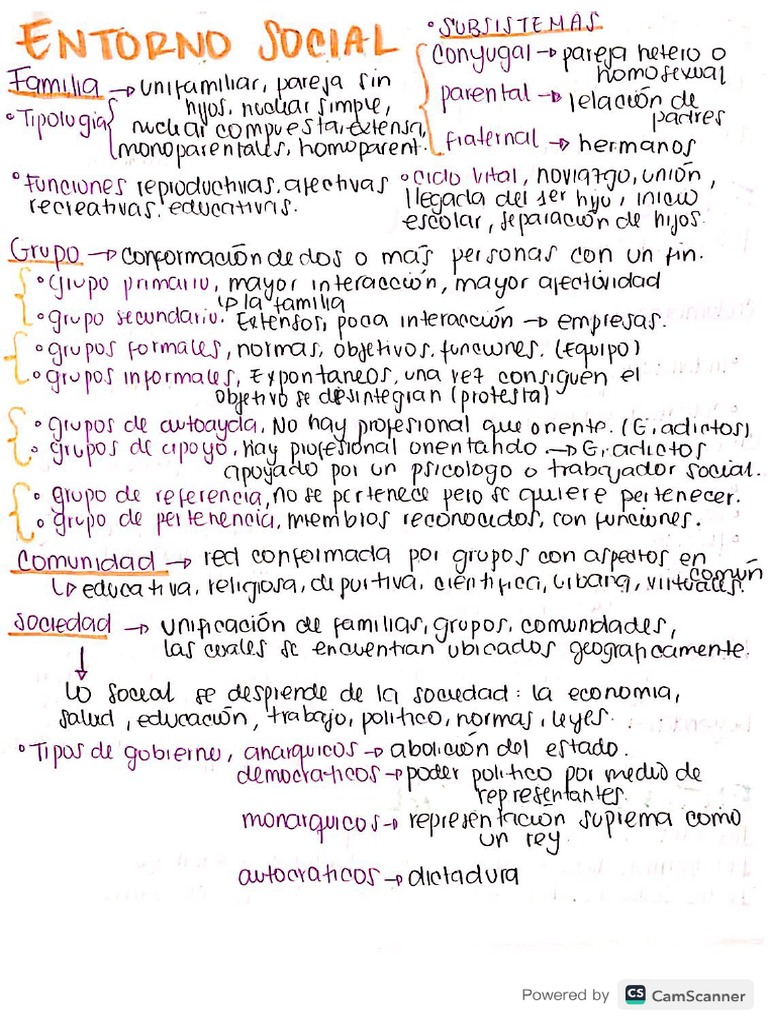 ENTORNO SOCIAL
Familia → unifamiliar, pareja sin
hijos, nuclear simple,
• Tipología { nuclear compuesta, extensa,
monoparentales, homoparent.
• SUBSISTEMAS
conyugal → pareja hetero o
homosexual
parental → relación de
padres
fraternal → hermanos
• Funciones reproductivas, afectivas
recreativas, educativas.
• Ciclo vital, noviazgo, unión,
llegada del ser hijo, inicio
escolar, separación de hijos.
Grupo → conformación de dos o más personas con un fin.
• grupo primario, mayor interacción, mayor afectividad
↳ la familia
• grupo secundario. Extensos, poca interacción → empresas.
• grupos formales, normas, objetivos, funciones. (Equipo)
• grupos informales, Expontaneos, una vez consiguen el
objetivo se desintegran (protesta)
• grupos de autoayda, No hay profesional que oriente. (G. adictos)
• grupos de apoyo, hay profesional orientando → G. adictos
apoyado por un psicologo o trabajador social.
• grupo de referencia, no se pertenece pero se quiere pertenecer.
• grupo de pertenencia, miembros reconocidos, con funciones.
Comunidad → red conformada por grupos con aspectos en
común
↳ educativa, religiosa, deportiva, científica, urbana, virtuales.
Sociedad → unificación de familias, grupos, comunidades,
las cuales se encuentran ubicados geograficamente.
↓
Lo social se desprende de la sociedad: la economia,
salud, educación, trabajo, politico, normas, leyes.
• Tipos de gobierno, anarquicos → abolición del estado.
democraticos → poder politico por medio de
representantes.
monarquicos → representación suprema como
un rey
autocraticos → dictadura
Powered by CS CamScanner